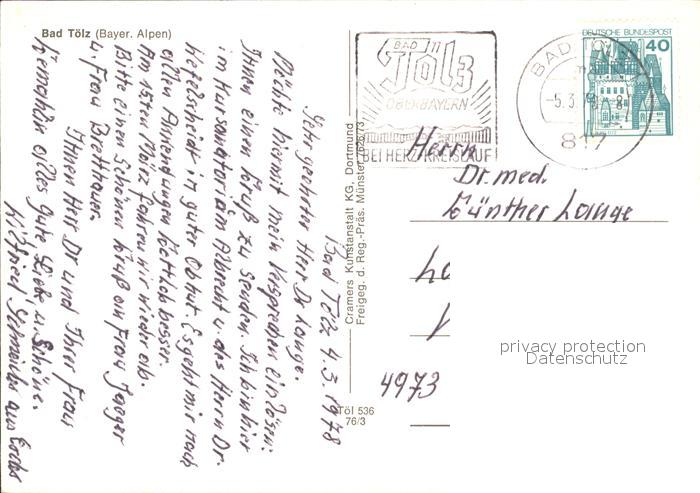 Bad Tölz (Bayer. Alpen)
Bad Tölz 4.3.1978
Sehr geehrter Herr Dr Lange.
Möchte hiermit mein Versprechen einlösen:
Ihnen einen Gruß zu senden. Ich bin hier
im Kursanatorium Albrecht u. des Herrn Dr.
in guter Obhut. Es geht mir nach
allen Anwendungen
Am 15ten März fahren wir wieder ab.
Bitte einen Schönen Gruß an Frau Jaeger
u. Frau Bretthauer.
Ihnen Herr Dr und Ihrer Frau
Gemahlin alles Gute Liebe u. Schöne.
aus
Cramers Kunstanstalt KG, Dortmund
Freigeg. d. Reg.-Präs. Münster 7626/73
Töl 536
76/3
BAD
Tölz
OBERBAYERN
BEI HERZ KREISLAUF
BAD TÖLZ
-5.3.78-8
817
DEUTSCHE BUNDESPOST
40
Herrn
Dr. med.
Günther Lange
4973
privacy protection
Datenschutz